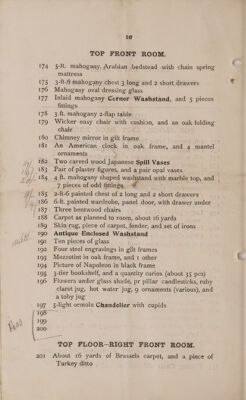 10
TOP FRONT ROOM.
174 5-ft. mahogany Arabian bedstead with chain spring
mattress
175 3-ft.6 mahogany chest 3 long and 2 short drawers
176 Mahogany oval dressing glass
177 Inlaid mahogany Corner Washstand, and 5 pieces
fittings
178 3 ft. mahogany 2-flap table
179 Wicker easy chair with cushion, and an oak folding
chair
180 Chimney mirror in gilt frame
181 An American clock in oak frame, and 4 mantel
ornaments
182 Two carved wood Japanese Spill Vases
183 Pair of plaster figures, and a pair opal vases
184 4 ft. mahogany shaped washstand with marble top, and
7 pieces of odd fittings
185 2-ft-6 painted chest of 2 long and 2 short drawers
186 6-ft. painted wardrobe, panel door, with drawer under
187 Three bentwood chairs
188 Carpet as planned to room, about 16 yards
189 Skin rug, piece of carpet, fender, and set of irons
190 Antique Enclosed Washstand
191 Ten pieces of glass
192 Four steel engravings in gilt frames
193 Mezzotint in oak frame, and 1 other
194 Picture of Napoleon in black frame
195 3-tier bookshelf, and a quantity curios (about 35 pcs)
196 Flowers under glass shade, pr pillar candlesticks, ruby
claret jug, hot water jug, 9 ornaments (various), and
a toby jug
197 5-light ormolu Chandelier with cupids
198
199
200
TOP FLOOR—RIGHT FRONT ROOM.
201 About 16 yards of Brussels carpet, and a piece of
Turkey ditto